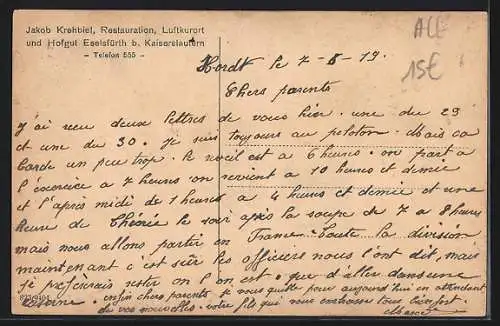 Jakob Krehbiel, Restauration, Luftkurort
und Hofgut Eselsfürth b. Kaiserslautern
- Telefon 555 -
ALL
15€
Hördt le 7-8-19.
Chers parents
J'ai reçu deux lettres de vous hier. une du 29
et une du 30. Je suis toujours au peloton. Mais ca
barde un peu trop. le reveil est a 6 heures. on part a
l'exercice a 7 heures on revient a 10 heures et demie
et l'après midi de 1 heures a 4 heures et demie et une
heure de Théorie le soir après la soupe de 7 a 8 heures
mais nous allons partir en France toute la division
maintenant c'est sûr les officiers nous l'ont dit, mais
je préférerais rester on l'on est. que d'aller dans une
caserne. enfin chers parents je vous quitte pour aujourd'hui en attendant
de vos nouvelles. votre fils qui vous embrasse tous bien fort.